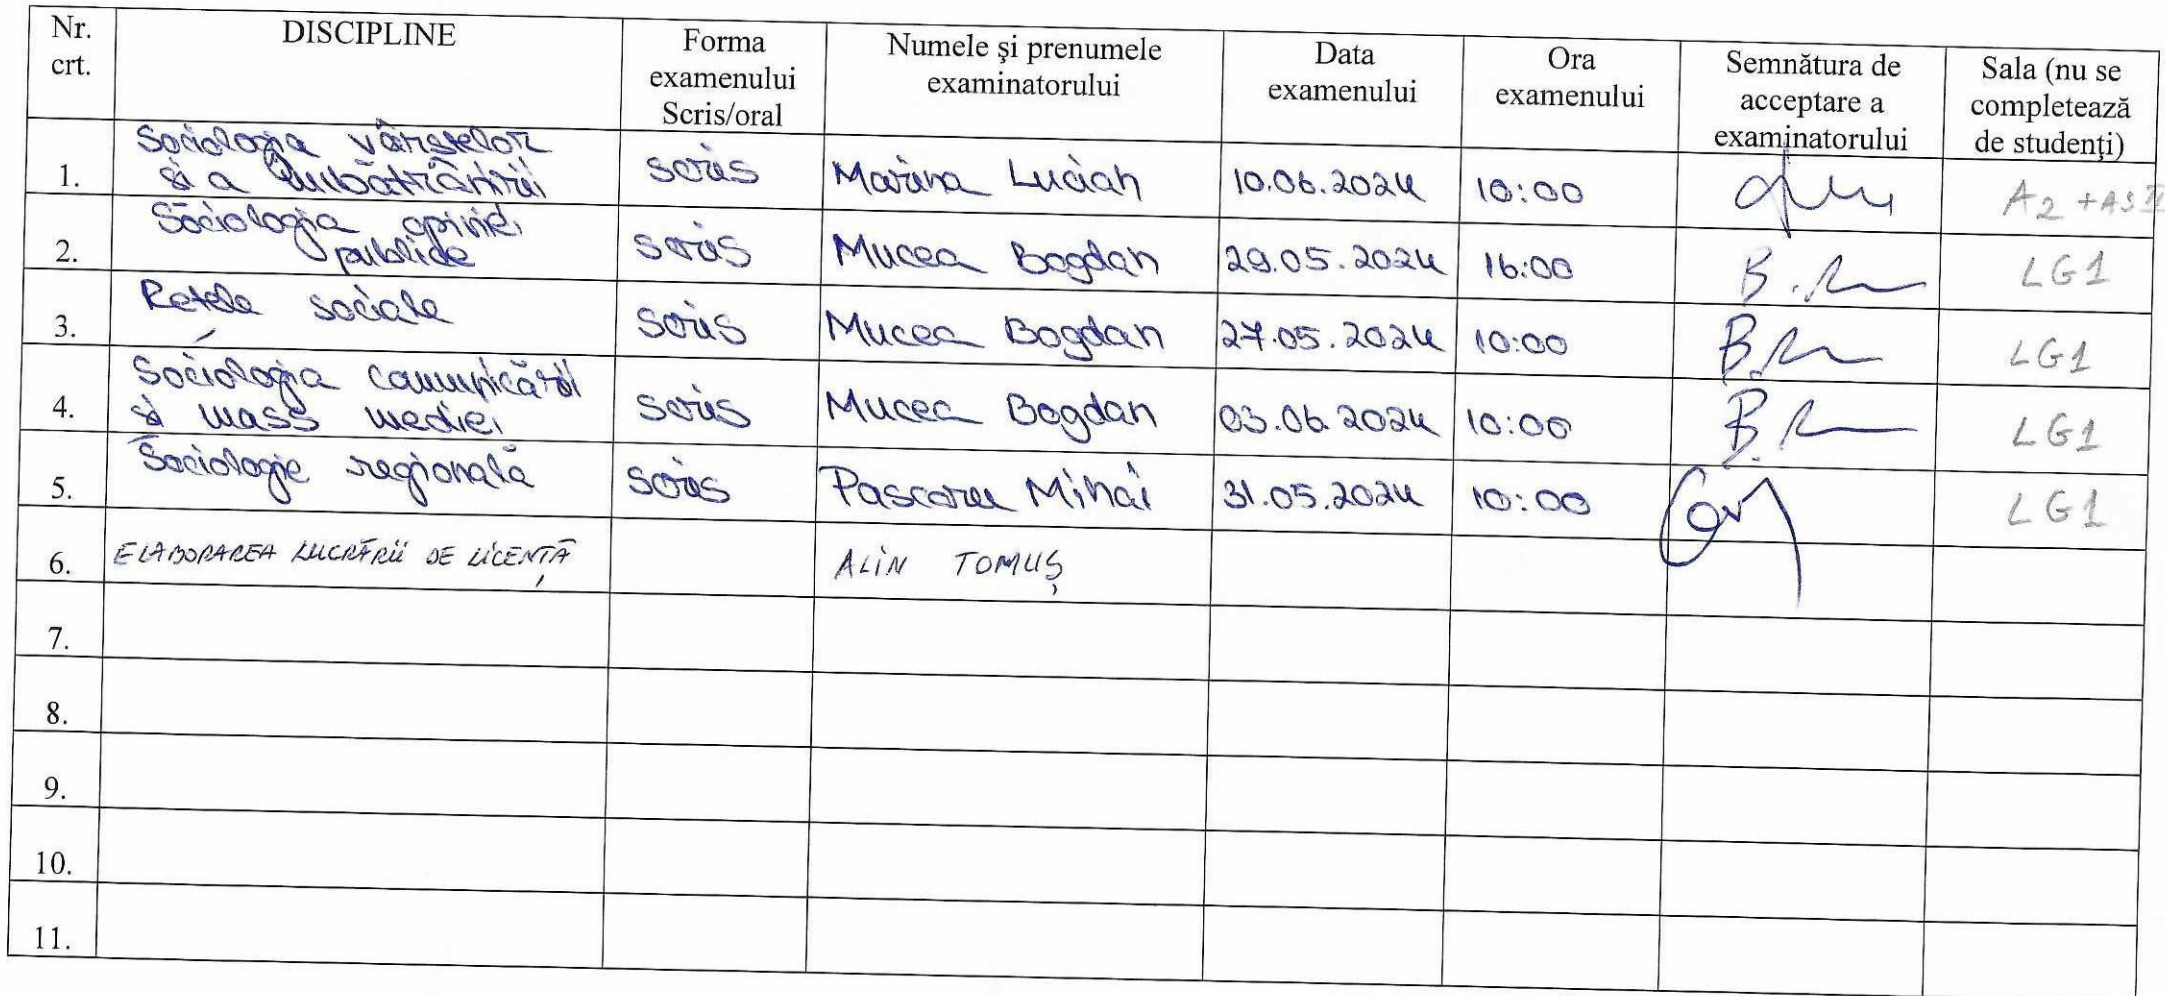 Nr. crt. DISCIPLINE Forma examenului Scris/oral Numele şi prenumele examinatorului Data examenului Ora examenului Semnătura de acceptare a examinatorului Sala (nu se completează de studenţi)
1. Sociologia vârstelor și a îmbătrânirii scris Marina Lucian 10.06.2024 10:00 A2 + AS II
2. Sociologia opiniei publice scris Mucea Bogdan 29.05.2024 16:00 LG1
3. Rețele sociale scris Mucea Bogdan 27.05.2024 10:00 LG1
4. Sociologia comunicării și mass mediei scris Mucea Bogdan 03.06.2024 10:00 LG1
5. Sociologie regională scris Pascaru Mihai 31.05.2024 10:00 LG1
6. ELABORAREA LUCRĂRII DE LICENȚĂ ALIN TOMUȘ
7.
8.
9.
10.
11.